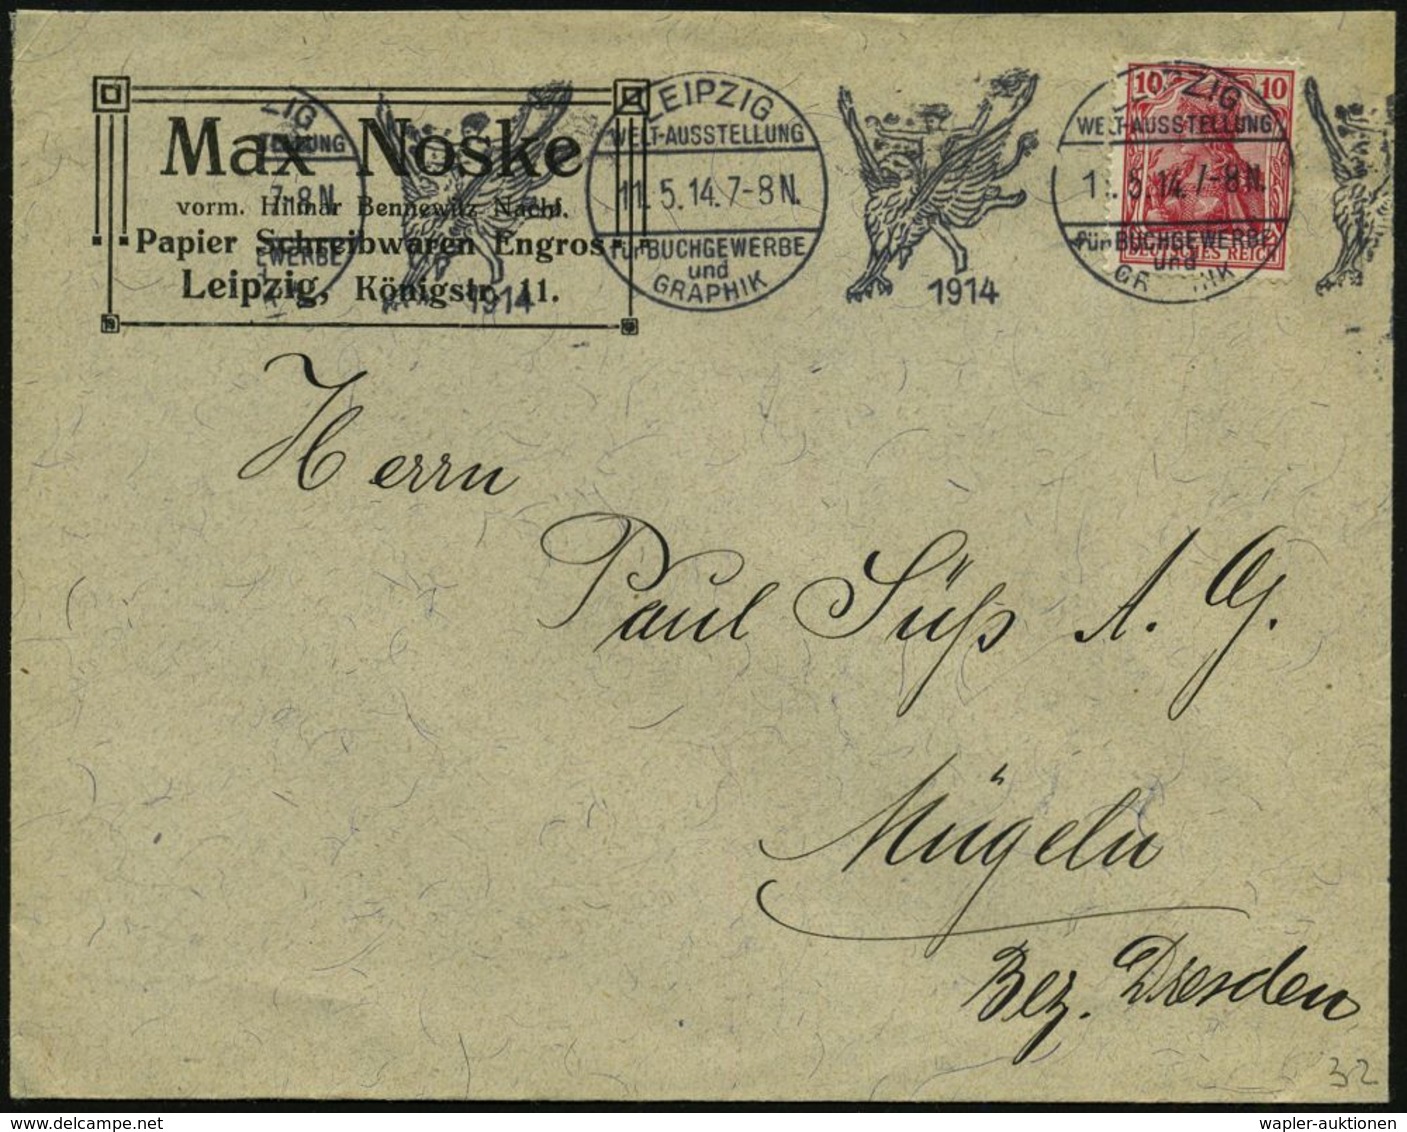 Max Noske
vorm. Hilmar Bennewitz Nachf.
Papier Schreibwaren Engros
Leipzig, Königstr. 11.
ZIG
7-8 N.
EWERBE
1914
LEIPZIG
WELT-AUSSTELLUNG
11.5.14.7-8 N.
für BUCHGEWERBE
und
GRAPHIK
1914
10 10
DEUTSCHES REICH
WELT-AUSSTELLUNG
5.14.7-8 N.
für BUCHGEWERBE
und
Herrn
Paul Süß A. G.
Mügeln
Bez. Dresden
32
wapler-auktionen